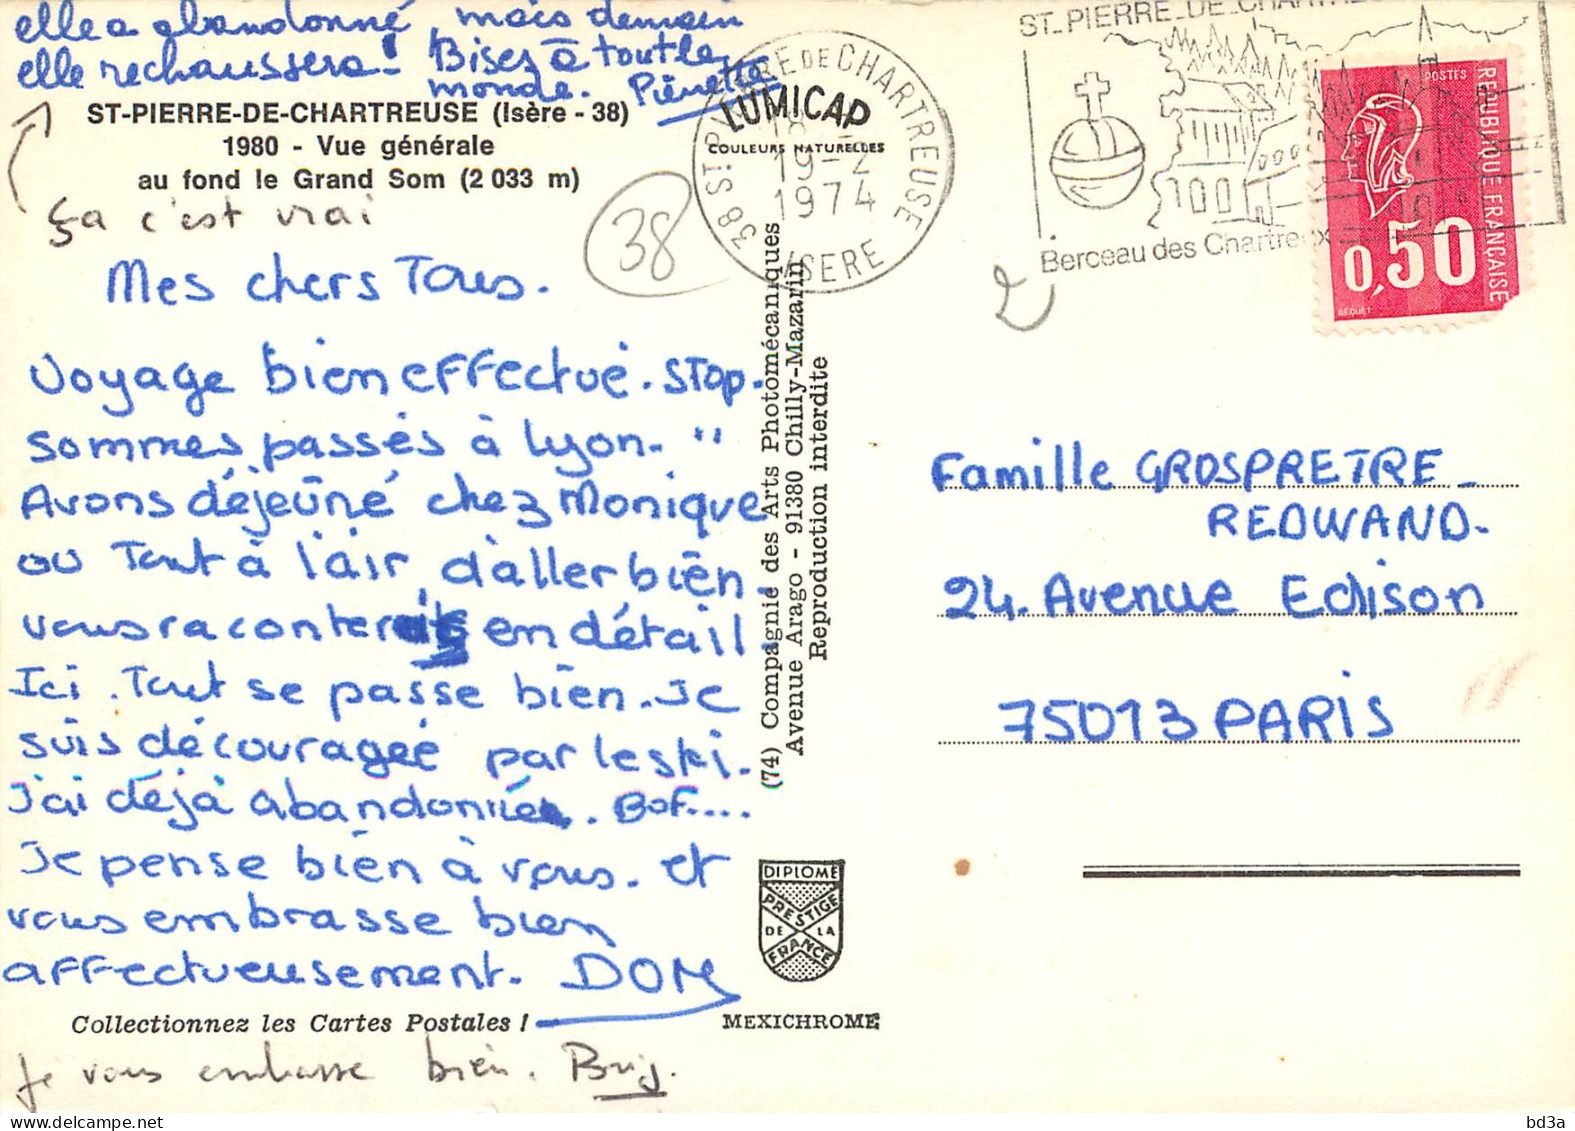 elle a abandonné, mais demain
elle rechaussera! Bises à tout le
monde. Pierrette
ST-PIERRE-DE-CHARTREUSE (Isère - 38)
1980 - Vue générale
au fond le Grand Som (2 033 m)
ça c'est vrai
Mes chers Tous.
Voyage bien effectué. STOP.
sommes passés à Lyon. "
Avons déjeuné chez Monique
où Tout à l'air d'aller bien.
vous raconter en détail.
Ici. Tout se passe bien. Je
suis découragée par le ski.
J'ai déjà abandonnée. Bof....
Je pense bien à vous. et
vous embrasse bien
affectueusement. DOM
Collectionnez les Cartes Postales !
Je vous embrasse bien. Brig.
38
LUMICAP
COULEURS NATURELLES
38 ST PIERRE DE CHARTREUSE
18
19-2
1974
ISERE
(74) Compagnie des Arts Photomécaniques
Avenue Arago - 91380 Chilly-Mazarin
Reproduction interdite
DIPLOME
PRESTIGE
DE LA
FRANCE
MEXICHROME
ST_PIERRE_DE_CHARTREUSE
Berceau des Chartreux
POSTES
REPUBLIQUE FRANÇAISE
0,50
BEQUET
Famille GROSPRETRE_
REDWAND.
24. Avenue Edison
75013 PARIS
delcampe.net
bd3a